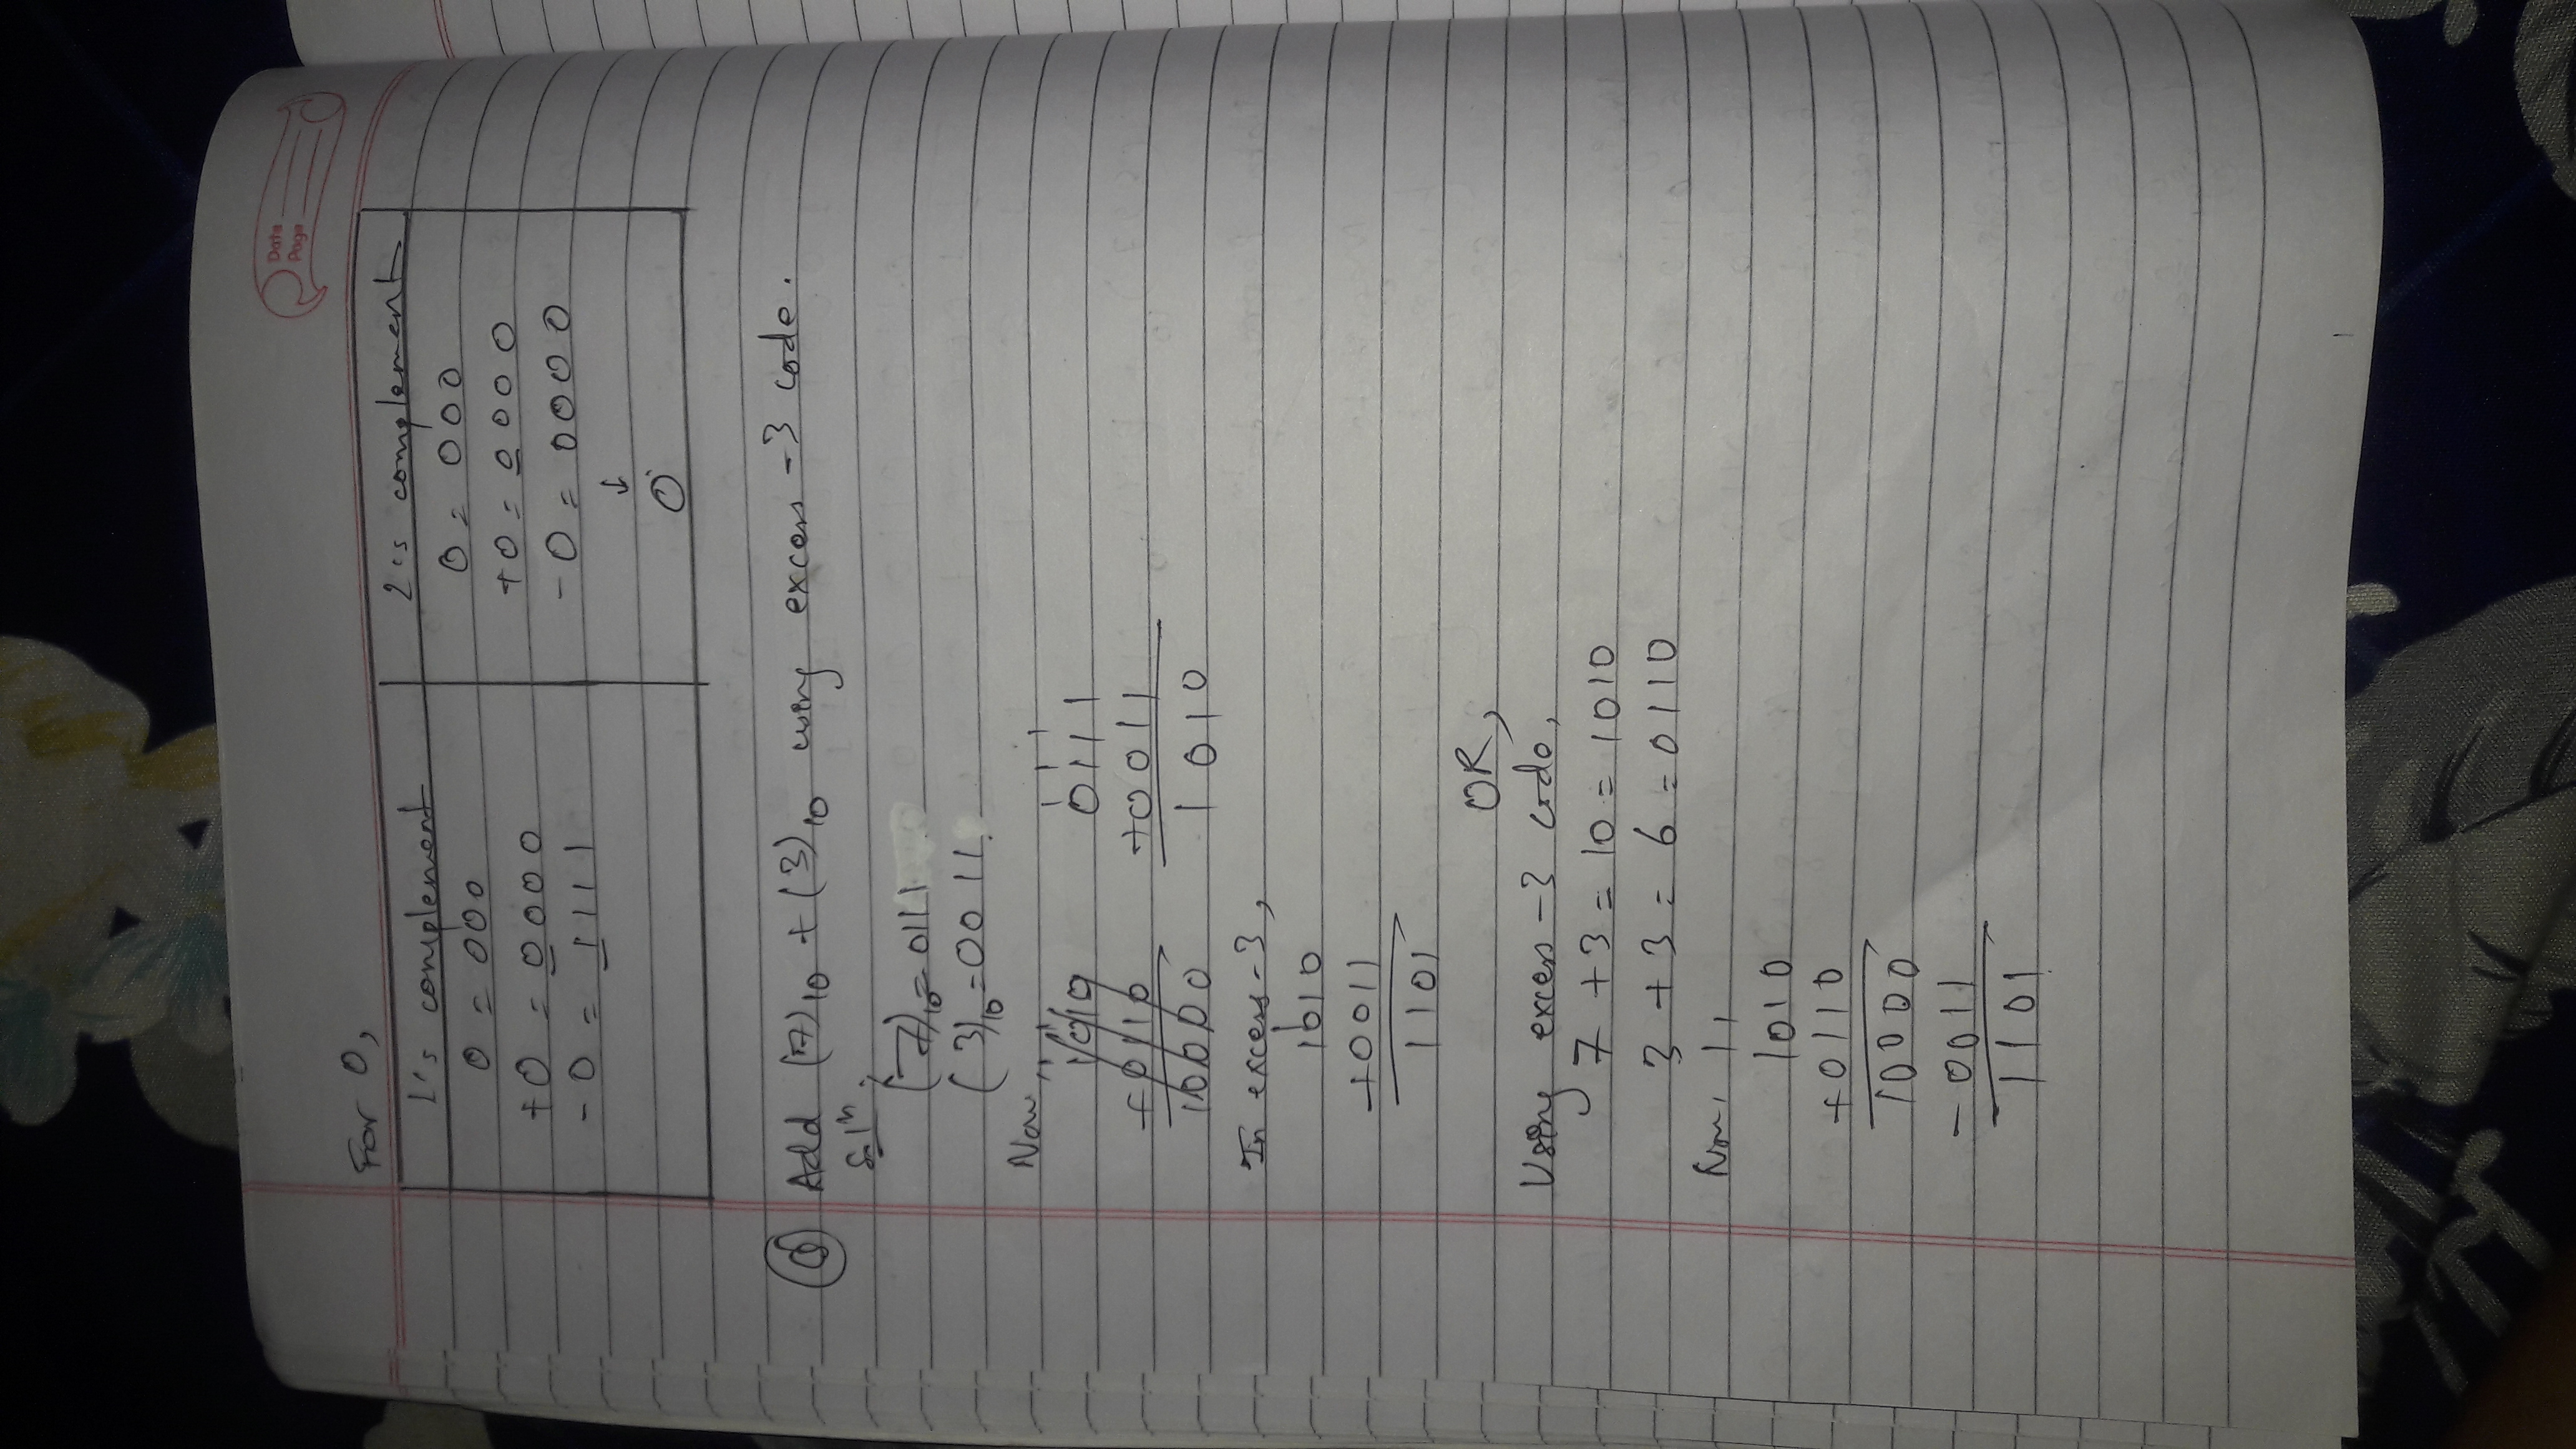 Date
Page
For 0,
1's complement
2's complement
0 = 000
0 = 000
+0 = 0000
+0 = 0000
-0 = 1111
-0 = 0000
↓
0
Q Add (7)10 + (3)10 using excess-3 code.
Sol^n;
(7)10 = 0111
(3)10 = 0011
Now,
1 1 1
1010 0111
+0110 +0011
10000 1010
In excess-3,
1
1010
+0011
1101
OR,
Using excess-3 code,
7 + 3 = 10 = 1010
3 + 3 = 6 = 0110
Now, 11
1010
+0110
10000
-0011
1101